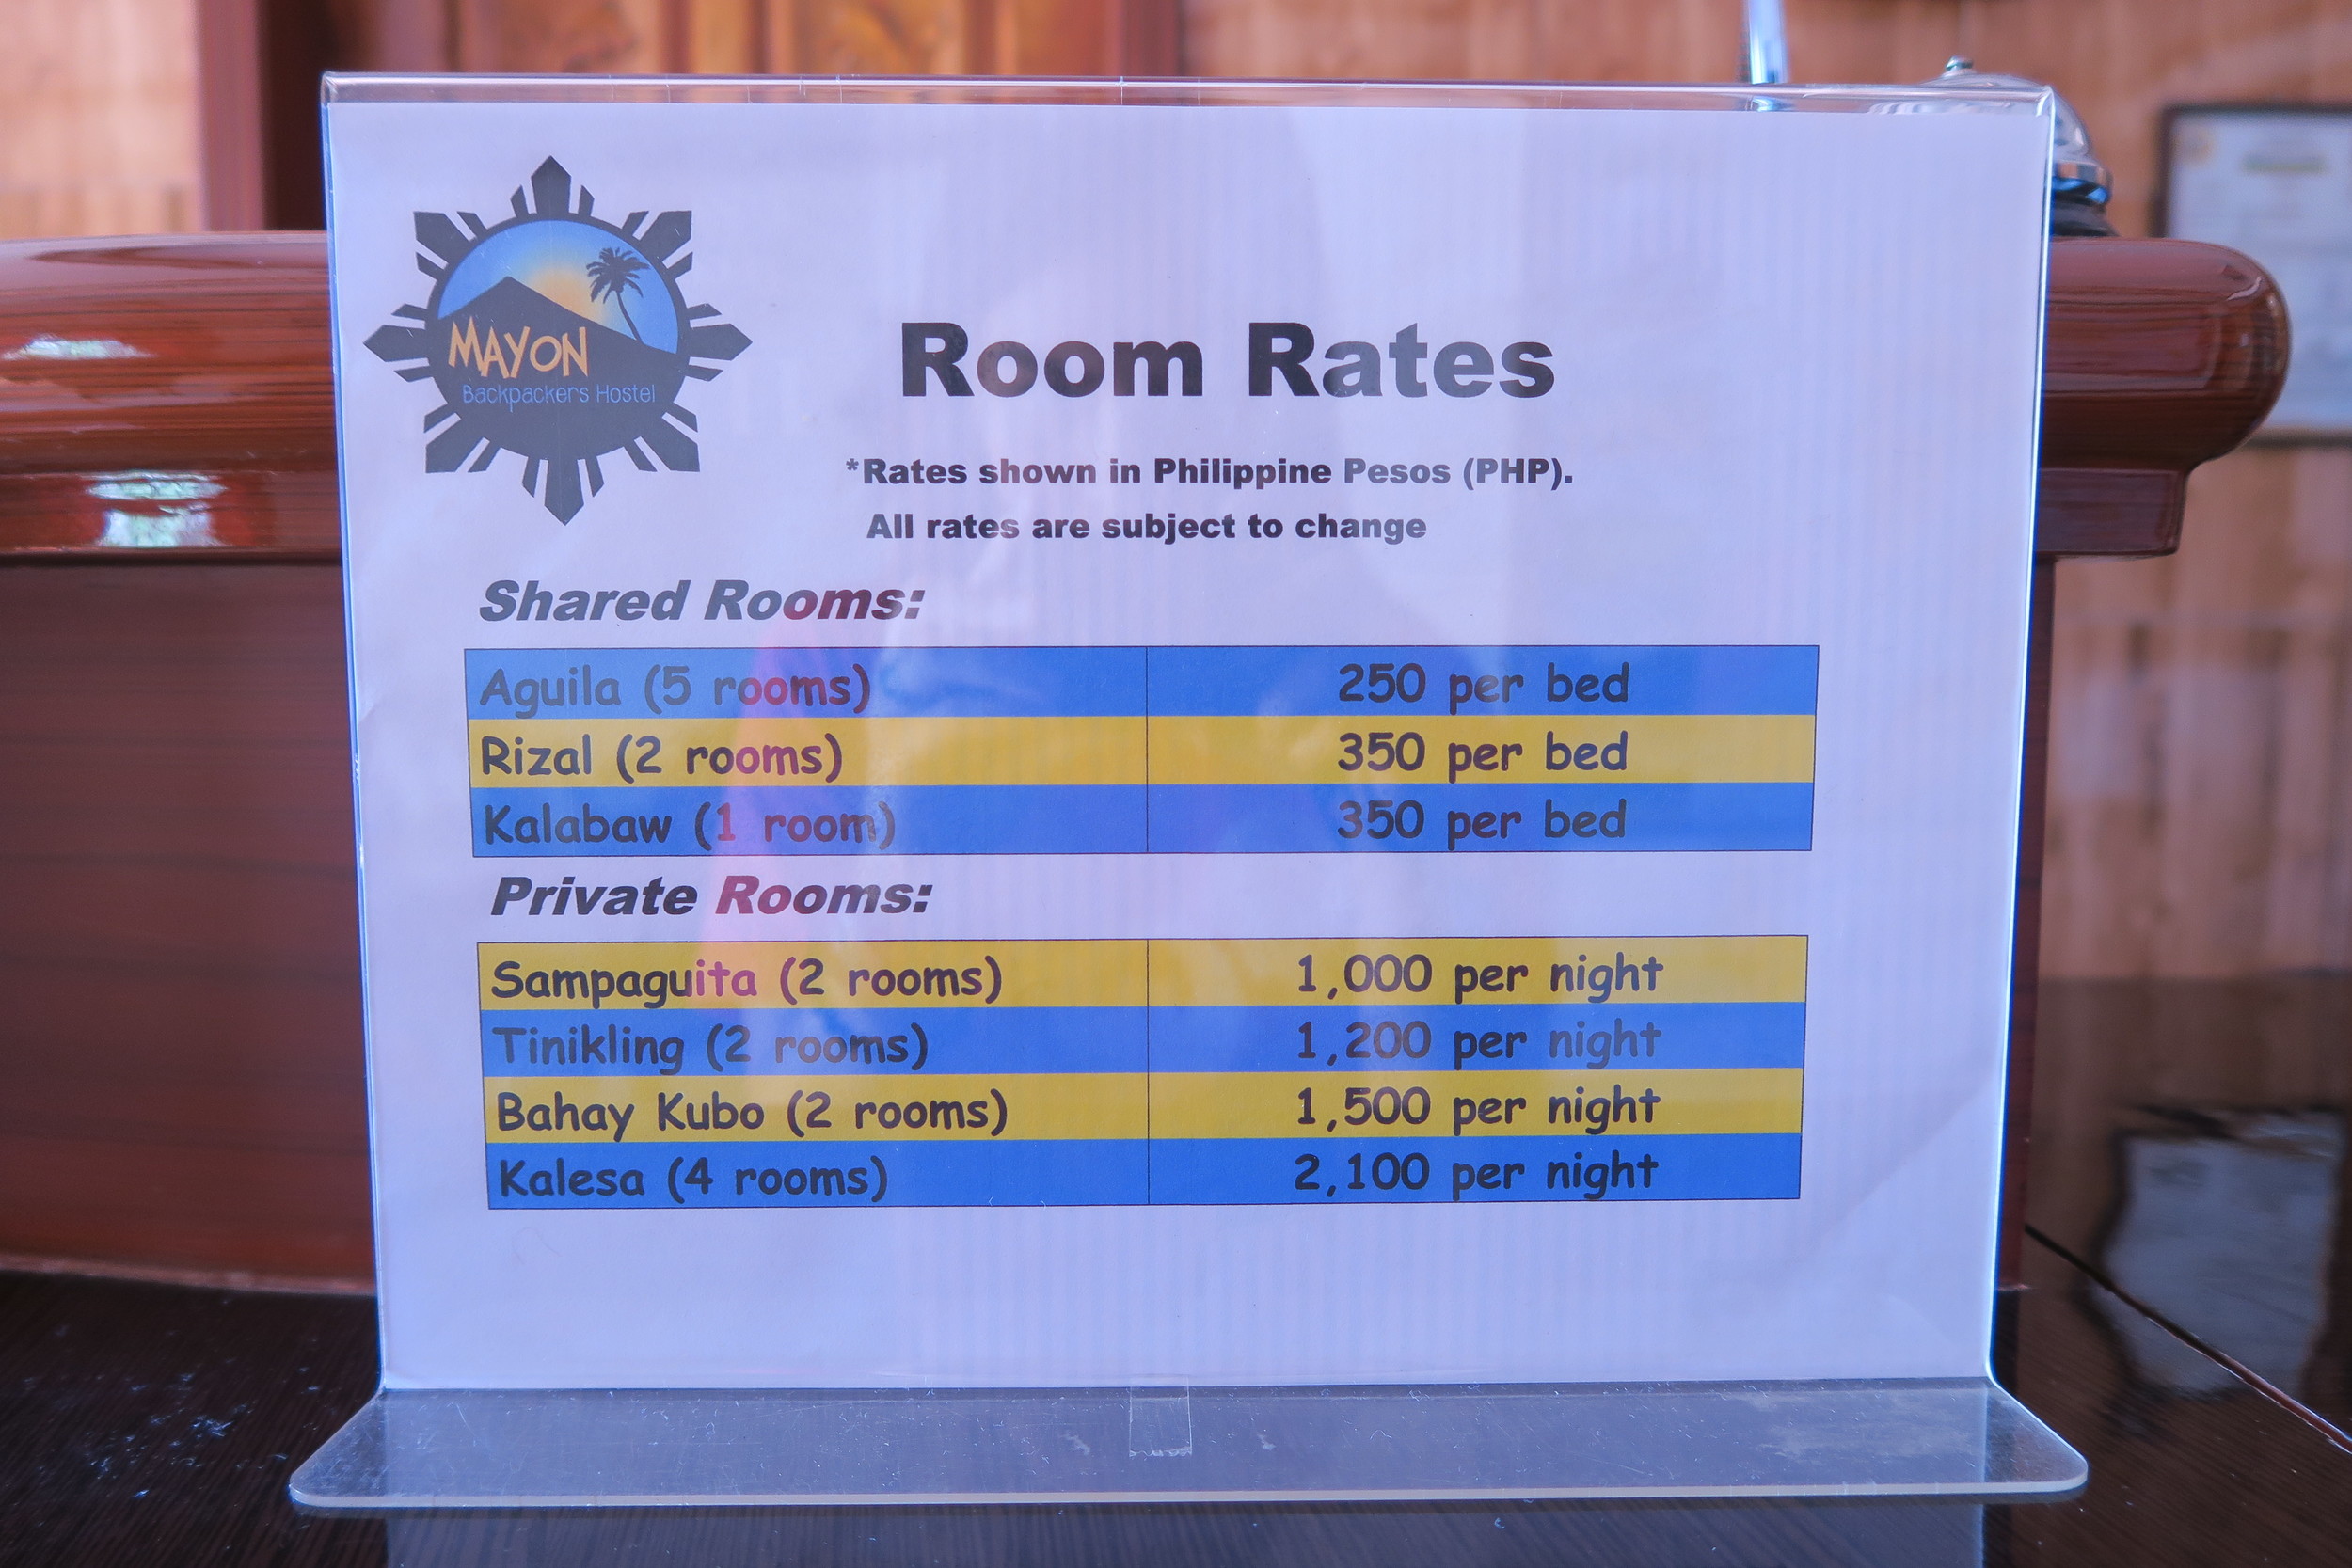 MAYON
Backpackers Hostel
Room Rates
*Rates shown in Philippine Pesos (PHP).
All rates are subject to change
Shared Rooms:
Aguila (5 rooms) 250 per bed
Rizal (2 rooms) 350 per bed
Kalabaw (1 room) 350 per bed
Private Rooms:
Sampaguita (2 rooms) 1,000 per night
Tinikling (2 rooms) 1,200 per night
Bahay Kubo (2 rooms) 1,500 per night
Kalesa (4 rooms) 2,100 per night